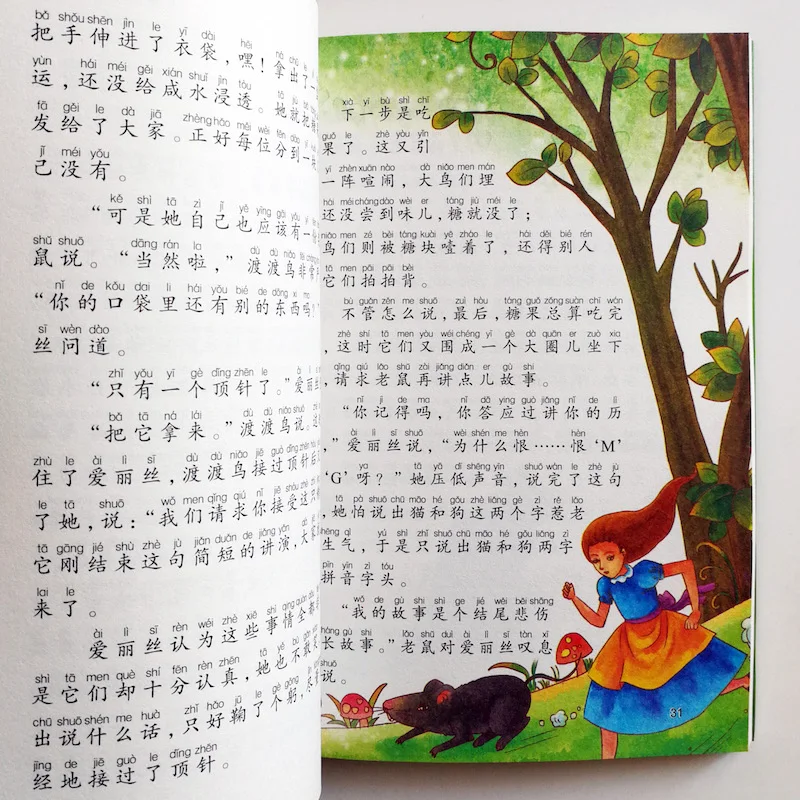 bǎ shǒu shēn jìn le yī dài hēi ná chū le yī
把手伸进了衣袋，嘿！拿出了一
yùn hái méi gěi xián shuǐ jìn tòu tā jiù bǎ
运，还没给咸水浸透。她就把
fā gěi le dà jiā zhèng hǎo měi wèi fēn dào yī
发给了大家。正好每位分到一
jǐ méi yǒu
己没有。
kě shì tā zì jǐ yě yīng gāi yǒu yī
“可是她自己也应该有一
shǔ shuō dāng rán la dù dù niǎo fēi cháng
鼠说。“当然啦，”渡渡鸟非常
nǐ de kǒu dai li hái yǒu bié de dōng xi ma
“你的口袋里还有别的东西吗？”
sī wèn dào
丝问道。
zhǐ yǒu yī gè dǐng zhēn le ài lì sī
“只有一个顶针了。”爱丽丝
bǎ tā ná lái dù dù niǎo shuō
“把它拿来。”渡渡鸟说。
zhù le ài lì sī dù dù niǎo jiē guò dǐng zhēn hòu
住了爱丽丝，渡渡鸟接过顶针后
le tā shuō wǒ men qǐng qiú nǐ jiē shòu zhè zhī
了她，说：“我们请求你接受这只
tā gāng jié shù zhè jù jiǎn duǎn de jiǎng yǎn dà jiā
它刚结束这句简短的讲演，大家
lai le
来了。
ài lì sī rèn wéi zhè xiē shì qing quán dōu
爱丽丝认为这些事情全都
shì tā men què shí fēn rèn zhēn tā yě bù gǎn xiào
是它们却十分认真，她也不敢笑
chū shuō shén me huà zhǐ hǎo jū le gè gōng jǐn
出说什么话，只好鞠了个躬，尽
jīng de jiē guò le dǐng zhēn
经地接过了顶针。
xià yī bù shì chī
下一步是吃
guǒ le zhè yòu yǐn
果了。这又引
yī zhèn xuān nào dà niǎo men mán
一阵喧闹，大鸟们埋
hái méi cháng dào wèi er táng jiù méi le
还没尝到味儿，糖就没了；
niǎo men zé bèi táng kuài yē zháo le hái děi bié rén
鸟们则被糖块噎着了，还得别人
tā men pāi pāi bèi
它们拍拍背。
bù guǎn zěn me shuō zuì hòu táng guǒ zǒng suàn chī wán
不管怎么说，最后，糖果总算吃完
zhè shí tā men yòu wéi chéng yī gè dà quān er zuò xia
，这时它们又围成一个大圈儿坐下
qǐng qiú lǎo shǔ zài jiǎng diǎn er gù shi
，请求老鼠再讲点儿故事。
nǐ jì de ma nǐ dā yìng guo jiǎng nǐ de lì
“你记得吗，你答应过讲你的历
ài lì sī shuō wèi shén me hèn hèn
，”爱丽丝说，“为什么恨……恨‘M’
ya tā yā dī shēng yīn shuō wán le zhè jù
‘G’呀？”她压低声音，说完了这句
tā pà shuō chū māo hé gǒu zhè liǎng gè zì rě lǎo
，她怕说出猫和狗这两个字惹老
shēng qì yú shì zhǐ shuō chū māo hé gǒu liǎng zì
生气，于是只说出猫和狗两字
pīn yīn zì tóu
拼音字头。
wǒ de gù shi shì gè jié wěi bēi shāng
“我的故事是个结尾悲伤
cháng gù shi lǎo shǔ duì ài lì sī tàn xī
长故事。”老鼠对爱丽丝叹息
shuō
说。
31